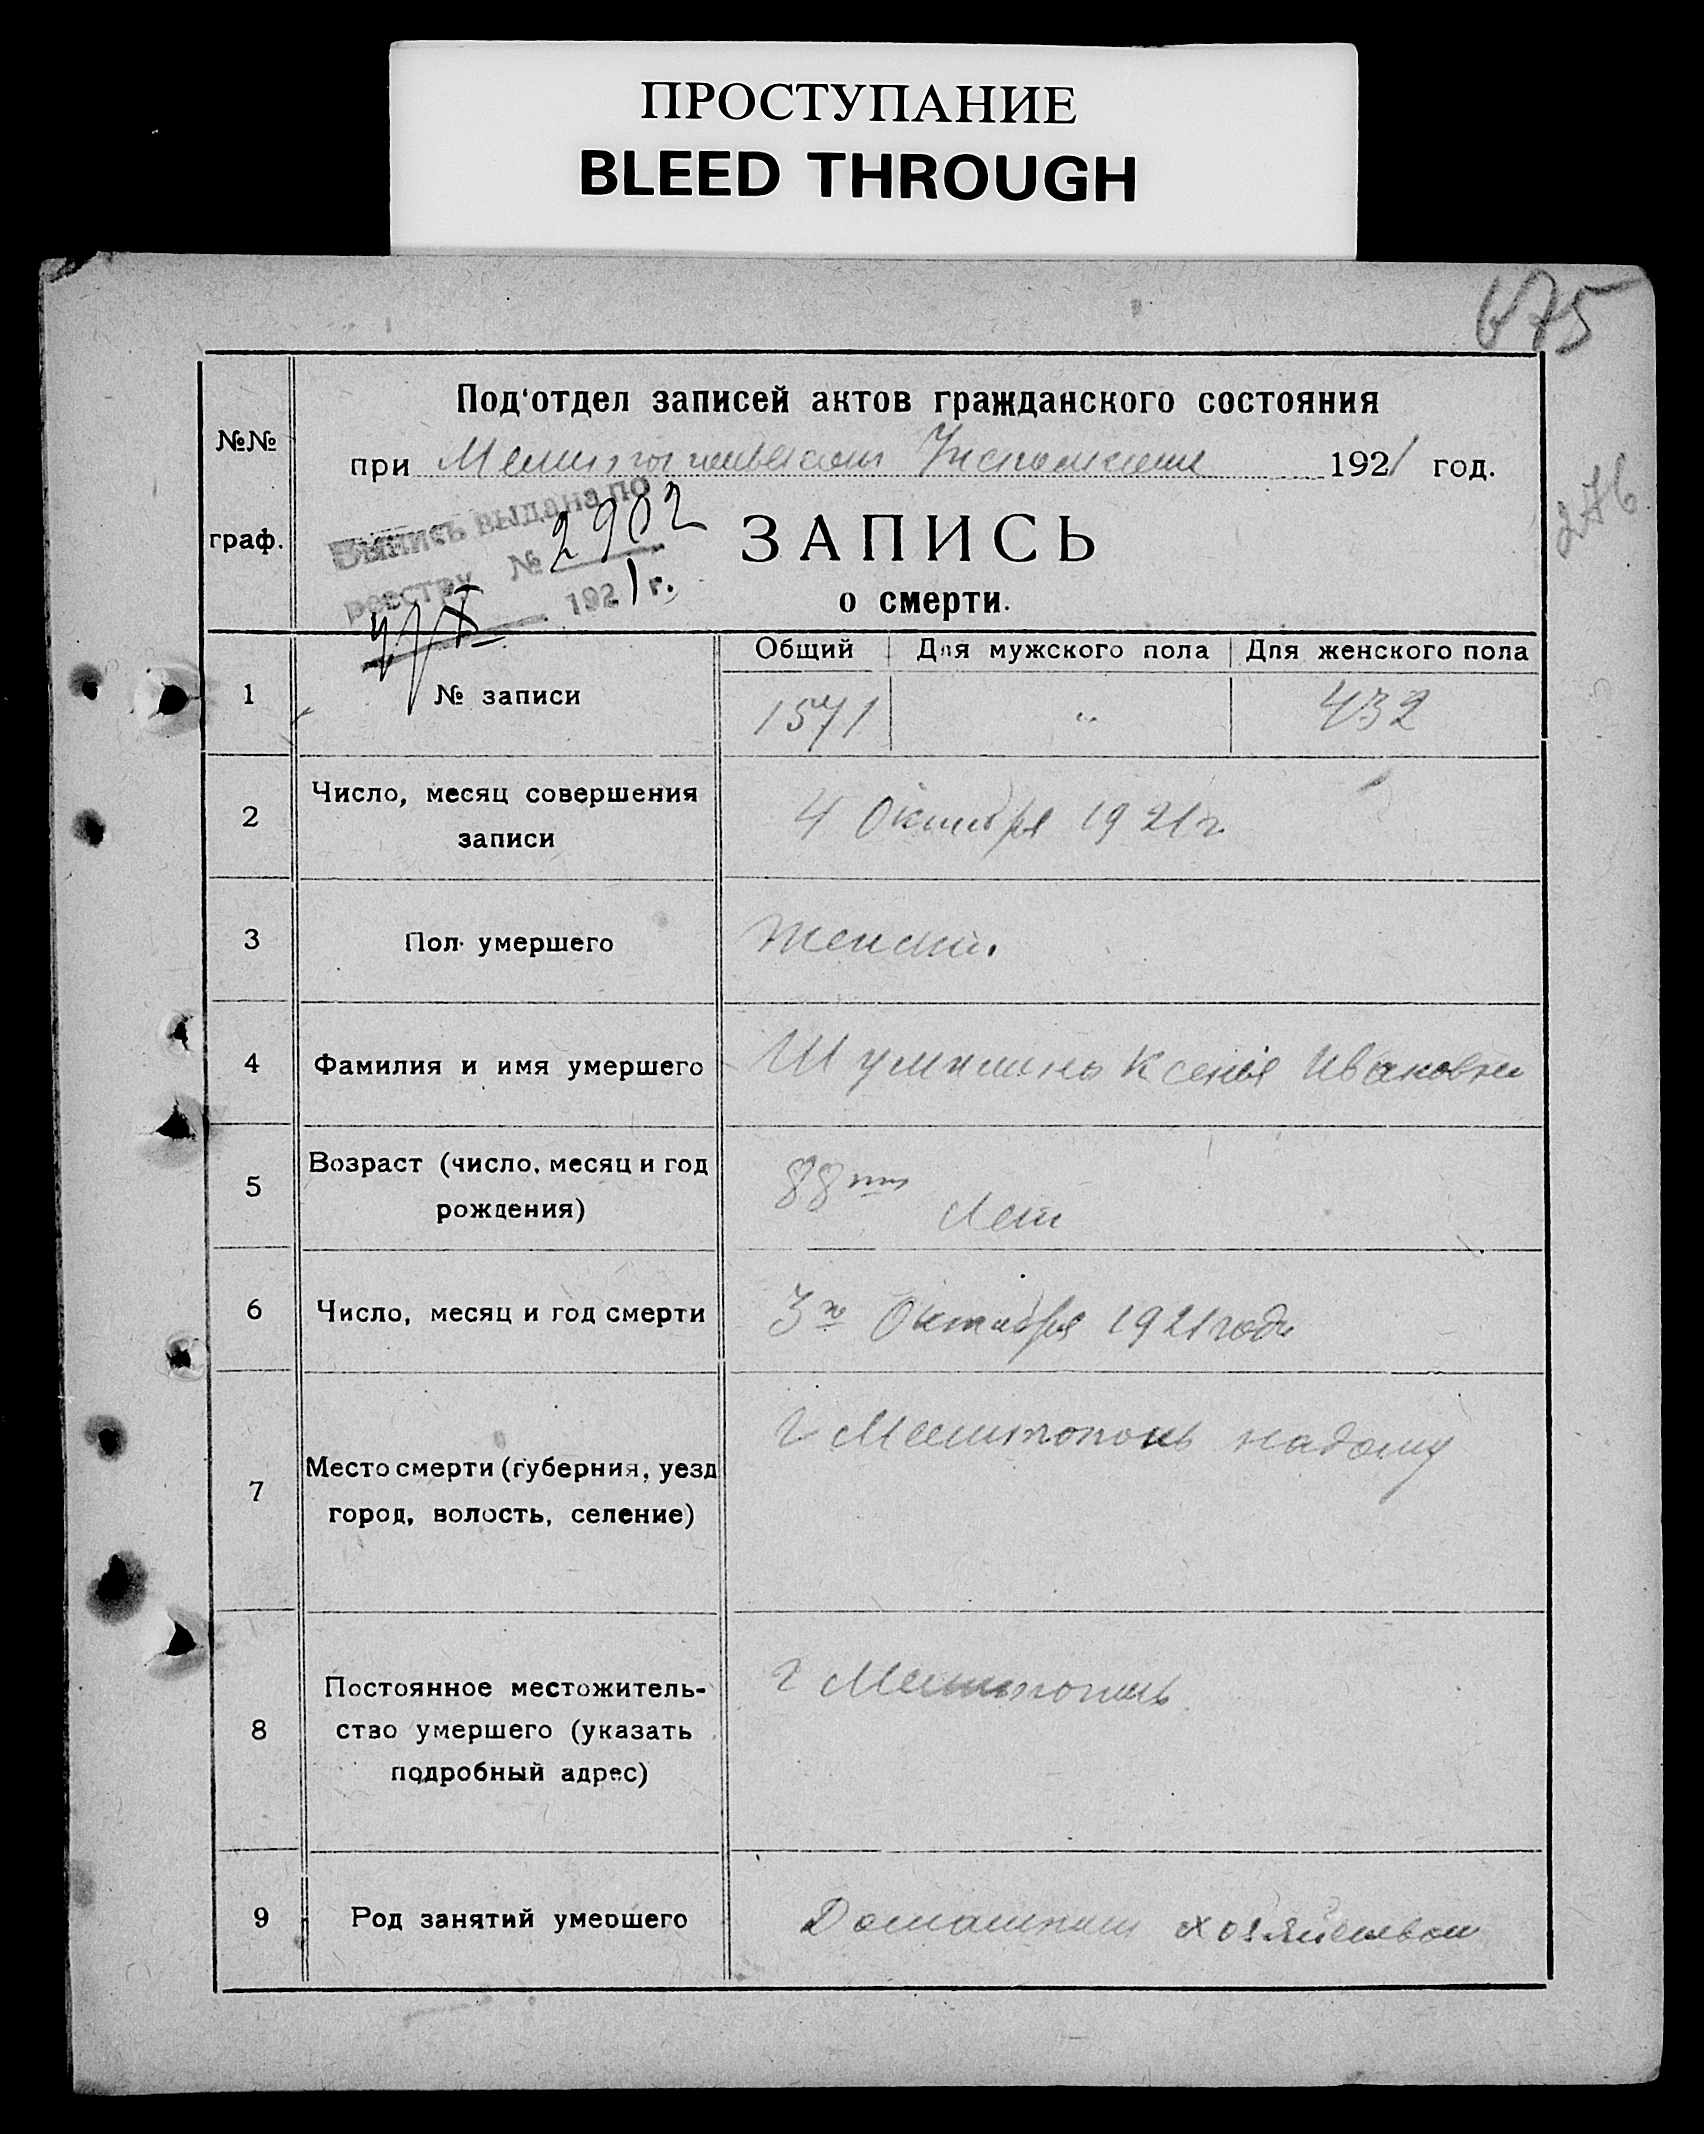 ПРОСТУПАНИЕ
BLEED THROUGH
675
Под'отдел записей актов гражданского состояния
№№
при Мелитопольском Исполкоме 1921 год.
276
Выпись выдана по
реестру № 2902
1921 г.
граф.
ЗАПИСЬ
о смерти.
Общий Для мужского пола Для женского пола
1 № записи 1571 " 432
2 Число, месяц совершения
записи
4 Октября 1921 г.
3 Пол умершего Женский.
4 Фамилия и имя умершего Ксенія Ивановна
5 Возраст (число, месяц и год
рождения)
88ми
лет
6 Число, месяц и год смерти 3го Октября 1921 года
7 Место смерти (губерния, уезд
город, волость, селение)
г Мелитополь на дому
8 Постоянное местожитель-
ство умершего (указать
подробный адрес)
г Мелитополь
9 Род занятий умершего Домашним хозяйством